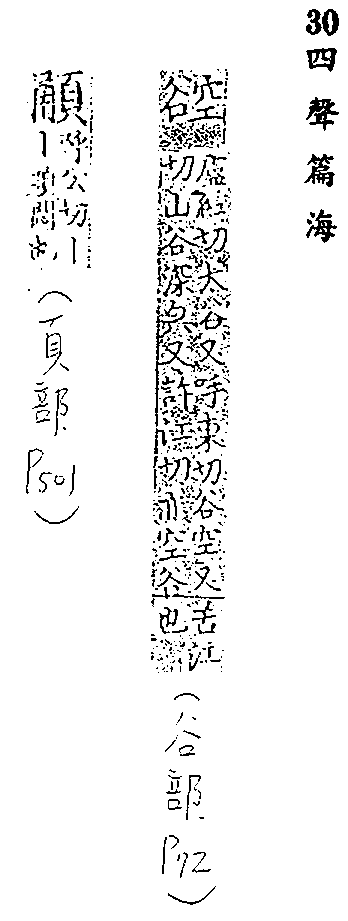 30四聲篇海
谾
盧紅切大谷又呼東切谷空又苦江
切山谷深皃又許江切亦空谷也
(谷部 P72)
呼公切丨
(頁部 P501)